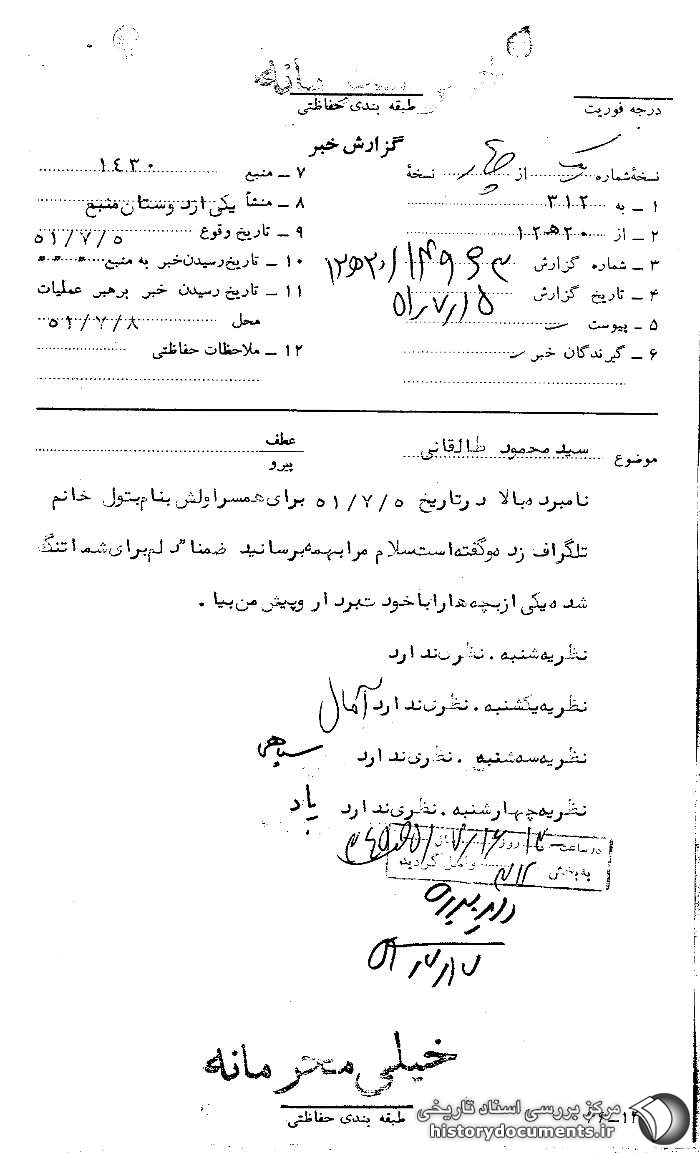 خیلی محرمانه
طبقه بندی حفاظتی
درجه فوریت
گزارش خبر
نسخهٔ شماره یک از چهار نسخهٔ
۱ ـ به ۳۱۲
۲ ـ از ۱۲ ه ۲۰
۳ ـ شماره گزارش
۴ ـ تاریخ گزارش
۵ ـ پیوست
۶ ـ گیرندگان خبر
۷ ـ منبع ۱۴۳۰
۸ ـ منشأ یکی از دوستان منبع
۹ ـ تاریخ وقوع ۵۱/۷/۵
۱۰ ـ تاریخ رسیدن خبر به منبع
۱۱ ـ تاریخ رسیدن خبر برهبر عملیات
محل ۵۱/۷/۸
۱۲ ـ ملاحظات حفاظتی
موضوع سید محمود طالقانی
عطف
پیرو
نامبرده بالا در تاریخ ۵۱/۷/۵ برای همسر اولش بنام بتول خانم
تلگراف زده و گفته است سلام مرا بهمه برسانید ضمناً دلم برای شما تنگ
شده یکی از بچه ها را با خودت بردار و پیش من بیا .
نظریه شنبه . نظری ندارد
نظریه یکشنبه . نظری ندارد آمال
نظریه سه شنبه . نظری ندارد سپاهی
نظریه چهارشنبه . نظری ندارد یاد
در ساعت روز
به بخش ۳۱۲ واصل گردید
خیلی محرمانه
طبقه بندی حفاظتی
مرکز بررسی اسناد تاریخی
historydocuments.ir